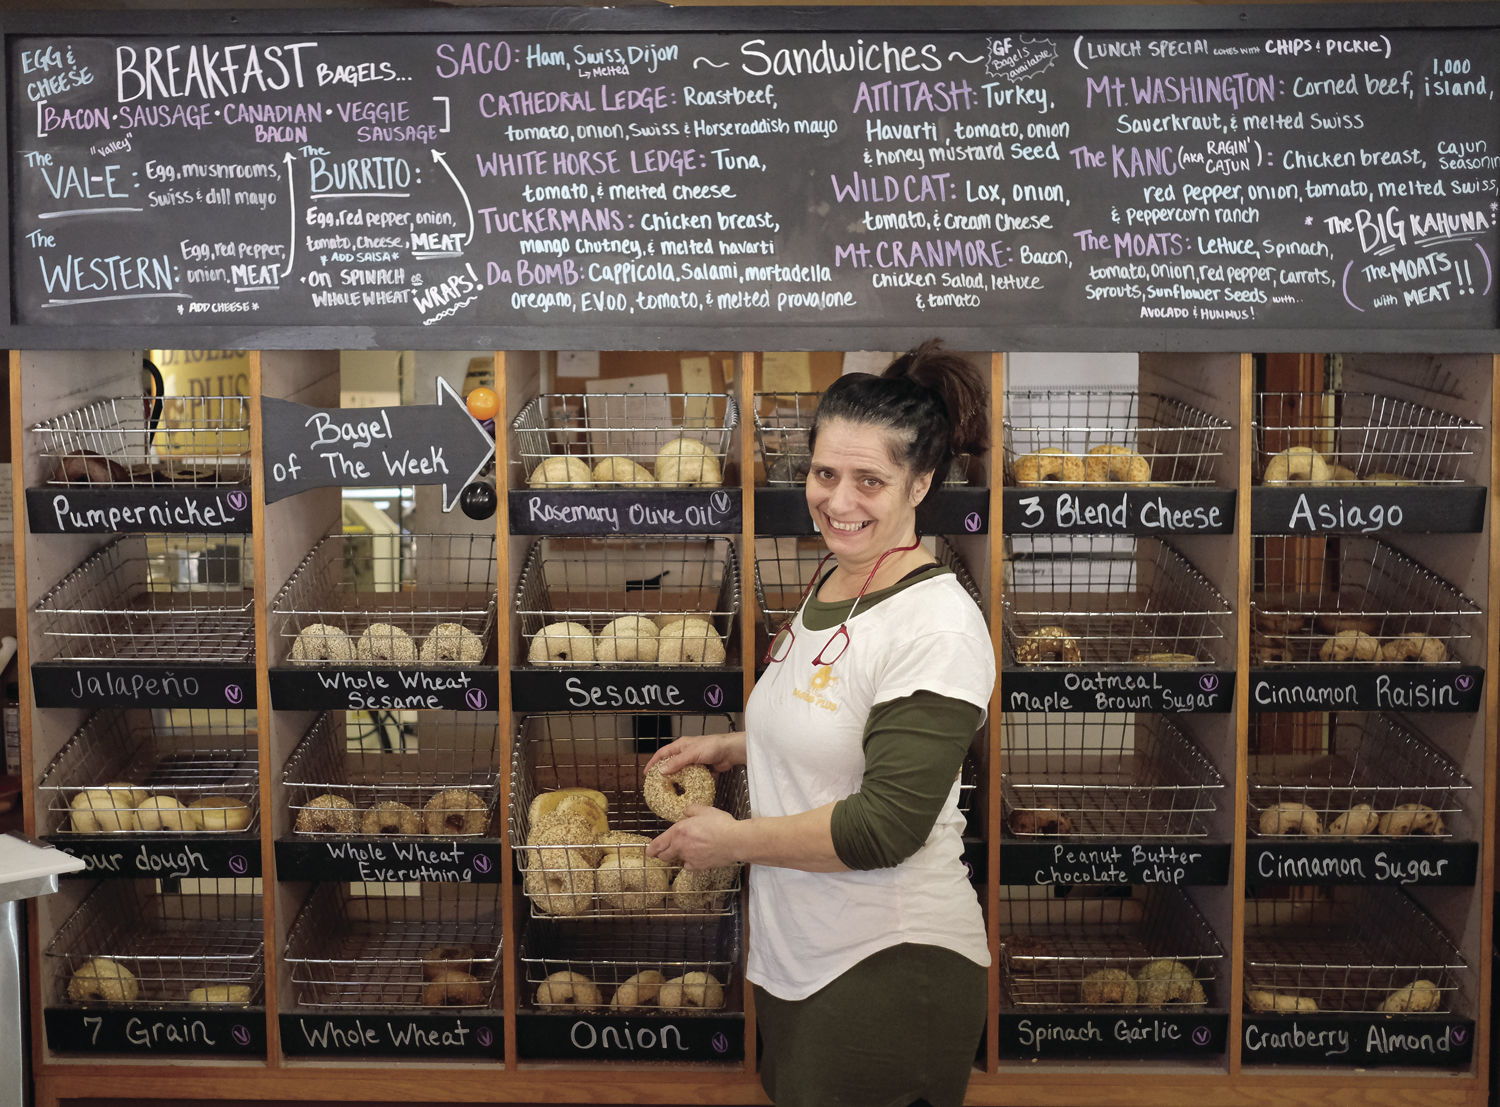 EGG &
CHEESE
BREAKFAST BAGELS...
[BACON · SAUSAGE · CANADIAN BACON · VEGGIE SAUSAGE]
The "valley"
VAL-E: Egg, mushrooms,
Swiss & dill mayo
The
WESTERN: Egg, red pepper,
onion, MEAT
* ADD CHEESE *
The
BURRITO:
Egg, red pepper, onion,
tomato, cheese, MEAT
* ADD SALSA *
· On SPINACH or
WHOLE WHEAT ·
WRAPS!
~ Sandwiches ~
GF
Bagels
available
(LUNCH SPECIAL COMES WITH CHIPS & PICKLE)
SACO: Ham, Swiss, Dijon
↳ Melted
CATHEDRAL LEDGE: Roastbeef,
tomato, onion, Swiss & Horseraddish mayo
WHITE HORSE LEDGE: Tuna,
tomato, & melted cheese
TUCKERMANS: Chicken breast,
mango chutney, & melted havarti
Da BOMB: Cappicola, Salami, mortadella
oregano, E.V.O.O, tomato, & melted provalone
ATTITASH: Turkey,
Havarti, tomato, onion
& honey mustard Seed
WILDCAT: Lox, onion,
tomato, & Cream Cheese
Mt. CRANMORE: Bacon,
Chicken Salad, lettuce
& tomato
Mt. WASHINGTON: Corned beef, 1,000 island,
Sauerkraut, & melted Swiss
The KANC (AKA RAGIN' CAJUN): Chicken breast, Cajun Seasonin
red pepper, onion, tomato, melted Swiss,
& peppercorn ranch
The MOATS: Lettuce, Spinach,
tomato, onion, red pepper, carrots,
Sprouts, Sunflower Seeds with..
AVOCADO & HUMMUS!
* The BIG KAHUNA: *
(The MOATS
with MEAT!!)
BAGELS
PLUS
Bagel
of The Week
Pumpernickel V
Rosemary Olive Oil V
V
3 Blend Cheese
Asiago
Jalapeño V
Whole Wheat
Sesame V
Sesame V
Oatmeal V
Maple Brown Sugar
Cinnamon Raisin V
Sour dough V
Whole Wheat
Everything V
Peanut Butter
Chocolate Chip
Cinnamon Sugar
7 Grain V
Whole Wheat V
Onion V
Spinach Garlic V
Cranberry Almond V